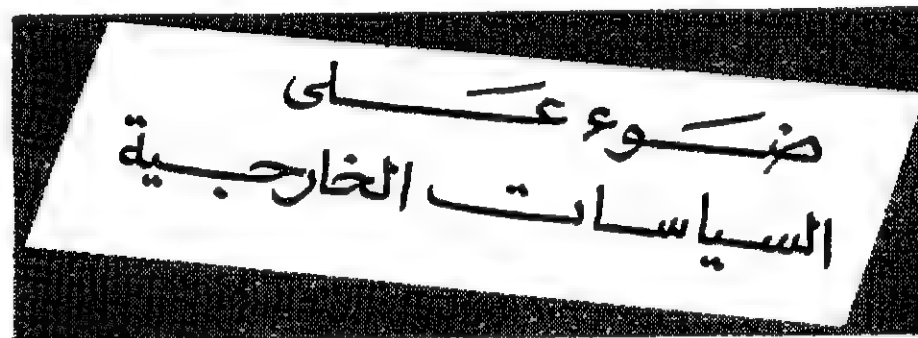 ضَوء عَلى
السياسات الخارجية